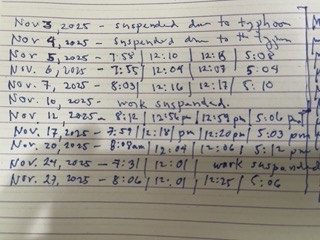 Nov 3, 2025 - suspended due to typhoon
Nov 4, 2025 - suspended due to
Nov 5, 2025 - 7:58 | 12:10 | 12:15 | 5:08
Nov. 6, 2025 - 7:55 | 12:04 | 12:07 | 5:04
Nov. 7, 2025 - 8:03 | 12:16 | 12:17 | 5:10
Nov. 10, 2025 - work suspended.
Nov 12, 2025 - 8:12 | 12:56pm | 12:59pm | 5:06 pm
Nov. 17, 2025 - 7:59 | 12:18 pm | 12:20pm | 5:03 pm
Nov. 20, 2025 - 8:08am | 12:04 | 12:06 | 5:12 pm
Nov. 24, 2025 - 7:31 | 12:01 | work suspended
Nov. 27, 2025 - 8:06 | 12:01 | 12:25 | 5:06